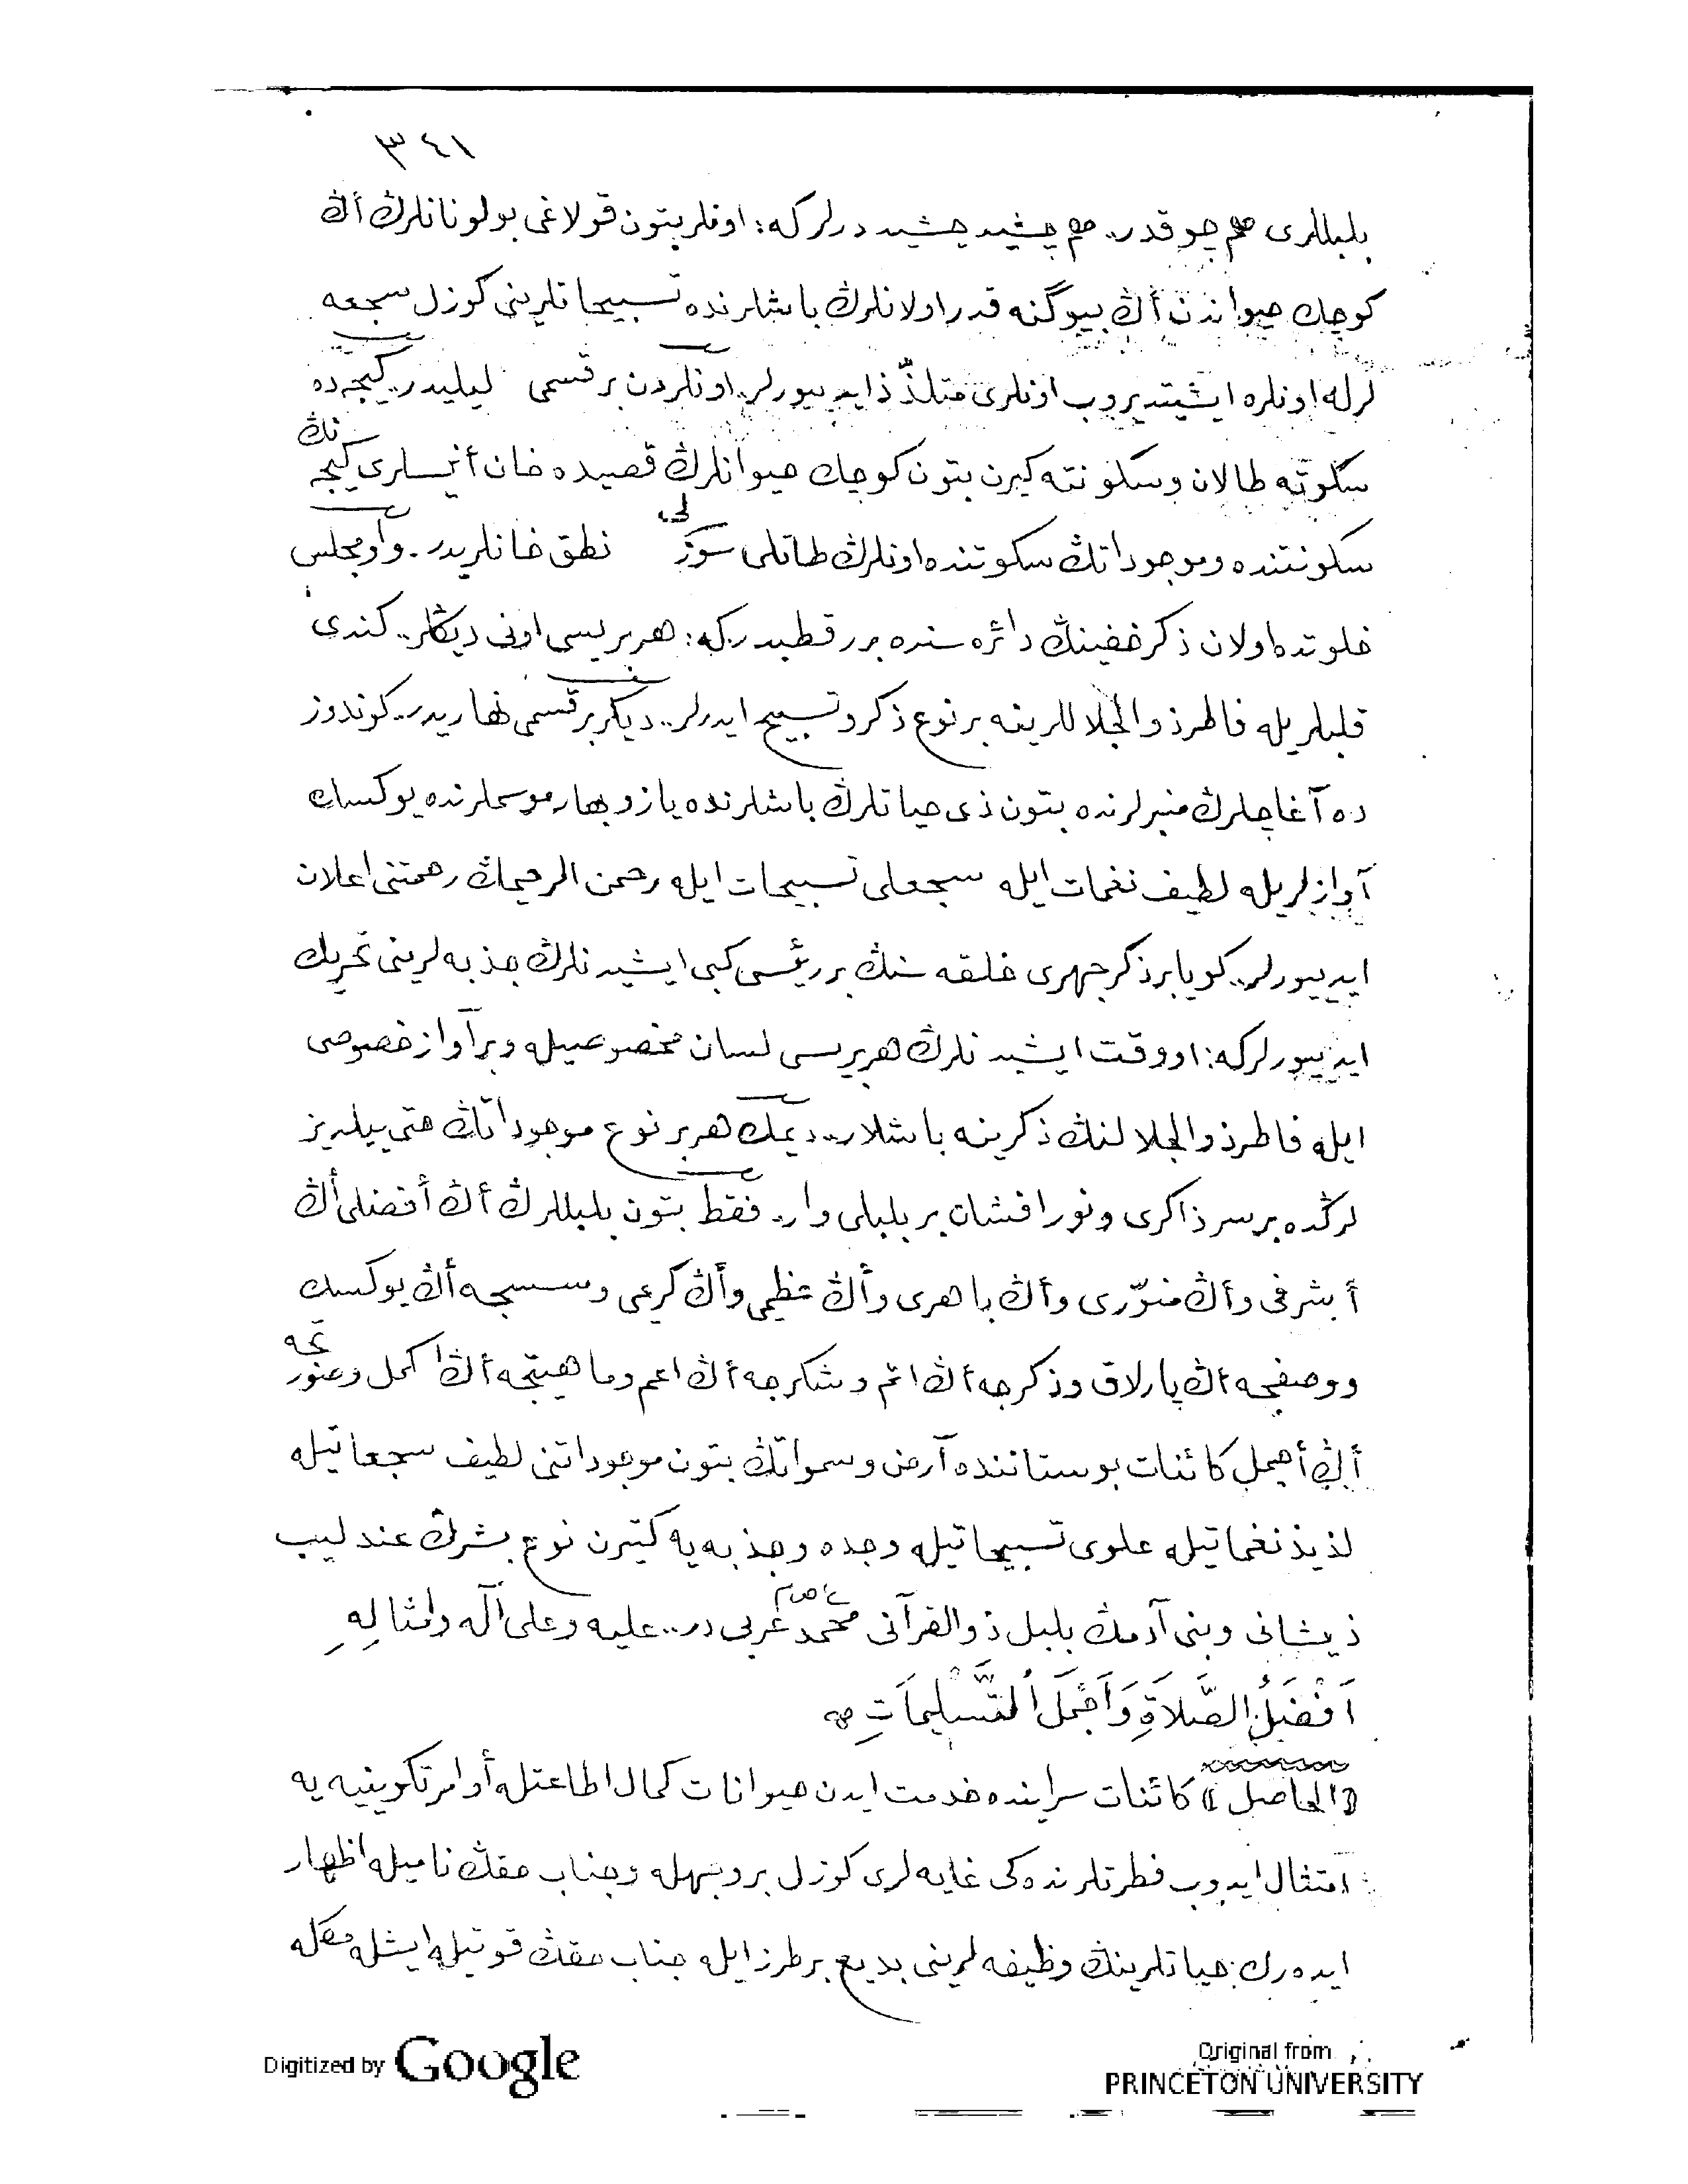 ٣٤١
بلبللری هم چوقدر.. هم چشید چشید درلر که: اونلر بتون قولاغی بولونانلرڭ أڭ
كوچك حیواندن أڭ بیوگنه قدر اولانلرڭ باشلرنده تسبیحاتلرینی كوزل سجعه
لرله اونلره ایشیتدیروب اونلری متلذّذ ایدییورلر. اونلردن بر قسمی لیلیدر.. كیجه ده
سكوته طالان و سكونته كیرن بتون كوچك حیوانلرڭ قصیده خان أنیسلری كیجه نڭ
سكونتنده و موجوداتڭ سكوتنده اونلرڭ طاتلی سوزلی نطق خانلریدر. و او مجلس
خلوتده اولان ذكر خفینڭ دائره سنده برر قطبدر كه: هر بریسی اونی دیڭلر.. كندی
قلبلریله فاطر ذوالجلاللرینه بر نوع ذكر و تسبیح ایدرلر.. دیكر بر قسمی نهاریدر.. كوندوز
ده آغاچلرڭ منبرلرنده بتون ذی حیاتلرڭ باشلرنده یاز و بهار موسملرنده یوكسك
آوازلریله لطیف نغمات ایله سجعلی تسبیحات ایله رحمن الرحیمڭ رحمتنی اعلان
ایدییورلر.. كویا بر ذكر جهری خلقه سنڭ بر رئیسی كبی ایشیدنلرڭ جذبه لرینی تحریك
ایدییورلر كه: او وقت ایشیدنلرڭ هر بریسی لسان مخصوصیله و بر آواز خصوصی
ایله فاطر ذوالجلالنڭ ذكرینه باشلار.. دیمك هر بر نوع موجوداتڭ حتی ییلدیز
لرڭده بر سرذاكری و نورافشان بر بلبلی وار.. فقط بتون بلبللرڭ أڭ أفضلی أڭ
أشرفی و أڭ منوّری و أڭ باهری و أڭ عظیمی و أڭ كریمی و سسجه أڭ یوكسك
و وصفجه أڭ پارلاق و ذكرجه أڭ اتم و شكرجه أڭ اعم و ماهیتجه أڭ اكمل و صورتجه
أڭ أجمل كائنات بوستاننده أرض و سمواتڭ بتون موجوداتنی لطیف سجعاتیله
لذیذ نغماتیله علوی تسبیحاتیله وجده و جذبه یه كتیرن نوع بشرڭ عندلیب
ذیشانی و بنی آدمڭ بلبل ذوالقرآنی محمد عربی در.. علیه و علی آله و امثالِهِ
اَفْضَلُ الصَّلاَةِ وَاَجْمَلُ التَّسْلِيمَاتِ
((الحاصل)) كائنات سراینده خدمت ایدن حیوانات كمال اطاعتله أوامر تكوینیه یه
امتثال ایدوب فطرتلرنده كی غایه لری كوزل بر وجهله و جناب حقڭ نامیله اظهار
ایده رك حیاتلرینڭ وظیفه لرینی بدیع بر طرز ایله جناب حقڭ قوتیله ایشله مكله
Digitized by Google
Original from
PRINCETON UNIVERSITY